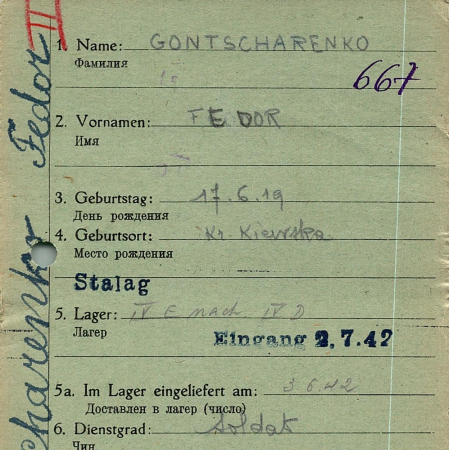 II
1. Name: GONTSCHARENKO
Фамилия
667
2. Vornamen: FEDOR
Имя
3. Geburtstag: 17.6.19
День рождения
4. Geburtsort: Kr. Kiewska
Место рождения
Stalag
5. Lager: IV E nach IV D
Лагер
Eingang 2.7.42
5a. Im Lager eingeliefert am: 3 6.42
Доставлен в лагер (число)
6. Dienstgrad: Soldat
Чин
charenko Fedor